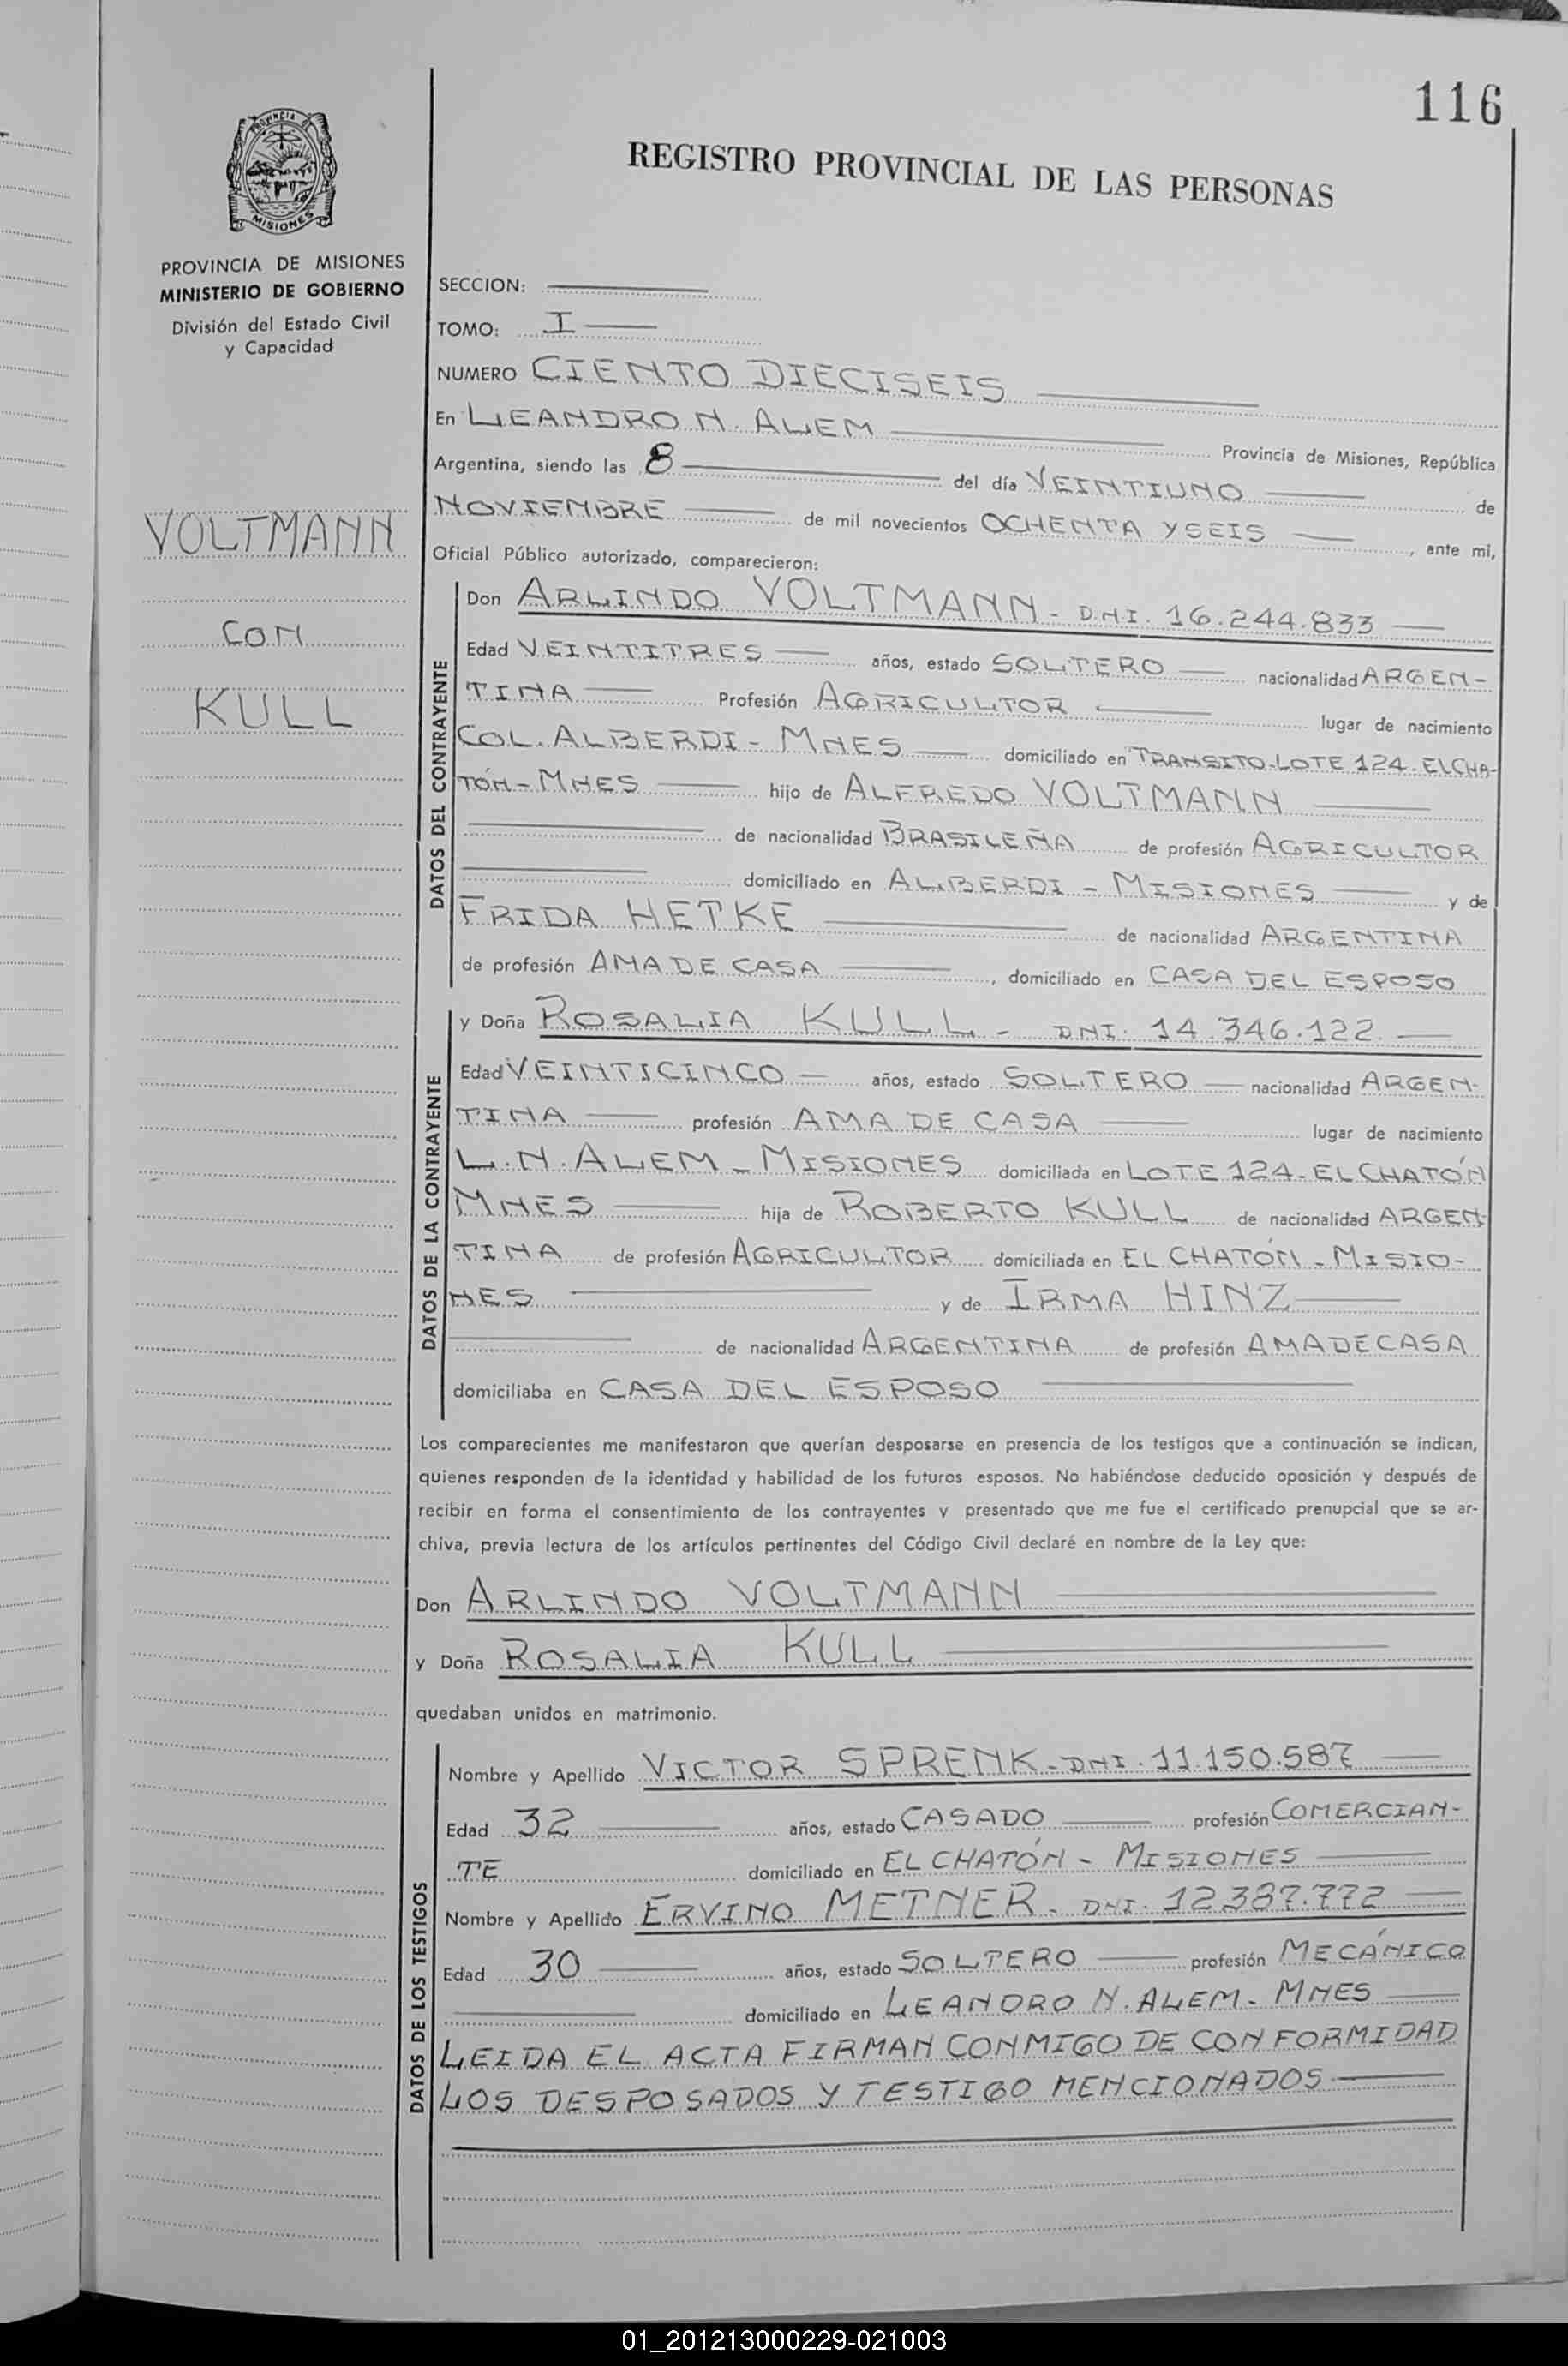 116
REGISTRO PROVINCIAL DE LAS PERSONAS
PROVINCIA DE MISIONES
PROVINCIA DE MISIONES
MINISTERIO DE GOBIERNO
División del Estado Civil
y Capacidad
VOLTMANN
CON
KULL
SECCION:
TOMO: I
NUMERO CIENTO DIECISEIS
En LEANDRO N. ALEM Provincia de Misiones, República
Argentina, siendo las 8 del día VEINTIUNO de
NOVIEMBRE de mil novecientos OCHENTA Y SEIS, ante mi,
Oficial Público autorizado, comparecieron:
DATOS DEL CONTRAYENTE
Don ARLINDO VOLTMANN - D.N.I. 16.244.833
Edad VEINTITRES años, estado SOLTERO nacionalidad ARGEN-
TINA Profesión AGRICULTOR lugar de nacimiento
COL. ALBERDI - MNES domiciliado en TRANSITO-LOTE 124. EL CHA-
TÓN - MNES hijo de ALFREDO VOLTMANN
de nacionalidad BRASILEÑA de profesión AGRICULTOR
domiciliado en ALBERDI - MISIONES y de
FRIDA HETKE de nacionalidad ARGENTINA
de profesión AMA DE CASA, domiciliado en CASA DEL ESPOSO
DATOS DE LA CONTRAYENTE
y Doña ROSALIA KULL - DNI. 14.346.122
Edad VEINTICINCO años, estado SOLTERO nacionalidad ARGEN-
TINA profesión AMA DE CASA lugar de nacimiento
L.N. ALEM - MISIONES domiciliada en LOTE 124 - EL CHATÓN
MNES hija de ROBERTO KULL de nacionalidad ARGEN-
TINA de profesión AGRICULTOR domiciliada en EL CHATÓN - MISIO-
NES y de IRMA HINZ
de nacionalidad ARGENTINA de profesión AMA DE CASA
domiciliaba en CASA DEL ESPOSO
Los comparecientes me manifestaron que querían desposarse en presencia de los testigos que a continuación se indican,
quienes responden de la identidad y habilidad de los futuros esposos. No habiéndose deducido oposición y después de
recibir en forma el consentimiento de los contrayentes y presentado que me fue el certificado prenupcial que se ar-
chiva, previa lectura de los artículos pertinentes del Código Civil declaré en nombre de la Ley que:
Don ARLINDO VOLTMANN
y Doña ROSALIA KULL
quedaban unidos en matrimonio.
DATOS DE LOS TESTIGOS
Nombre y Apellido VICTOR SPRENK - DNI. 11.150.587
Edad 32 años, estado CASADO profesión COMERCIAN-
TE domiciliado en EL CHATÓN - MISIONES
Nombre y Apellido ERVINO METNER - DNI. 12.387.772
Edad 30 años, estado SOLTERO profesión MECÁNICO
domiciliado en LEANDRO N. ALEM - MNES
LEIDA EL ACTA FIRMAN CONMIGO DE CONFORMIDAD
LOS DESPOSADOS Y TESTIGO MENCIONADOS
01_201213000229-021003